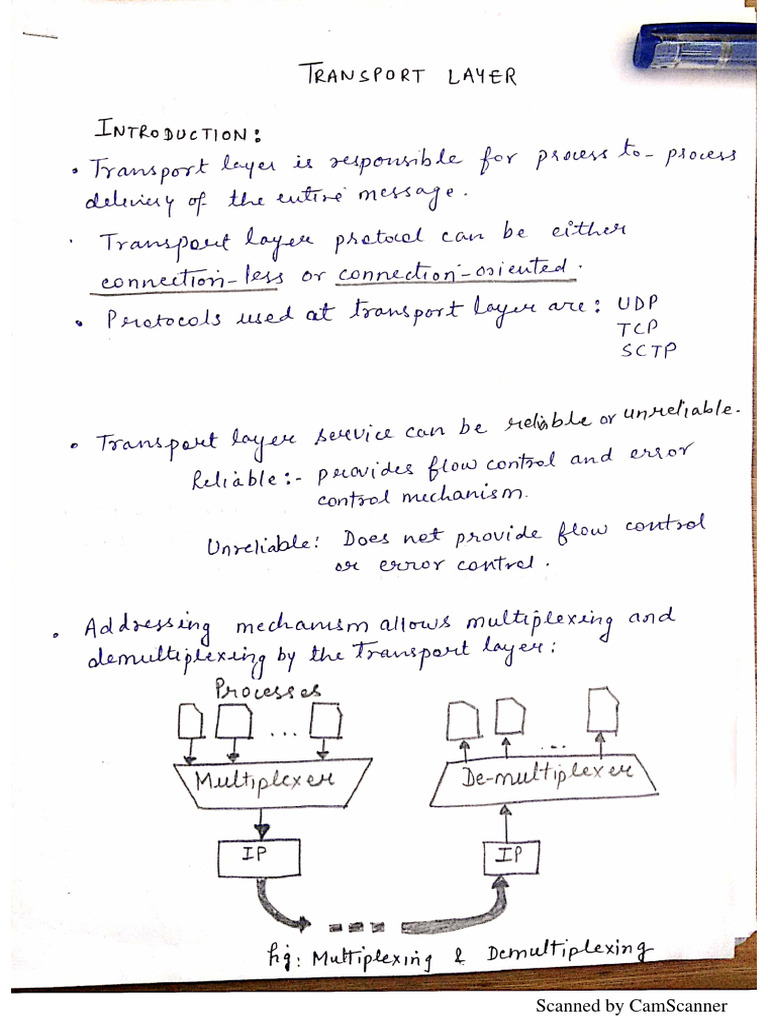 TRANSPORT LAYER
INTRODUCTION:
• Transport layer is responsible for process to-process
delivery of the entire message.
• Transport layer protocol can be either
connection-less or connection-oriented.
• Protocols used at transport layer are: UDP
TCP
SCTP
• Transport layer service can be reliable or unreliable.
Reliable:- provides flow control and error
control mechanism.
Unreliable: Does not provide flow control
or error control.
• Addressing mechanism allows multiplexing and
demultiplexing by the Transport layer:
Processes
... ...
Multiplexer De-multiplexer
IP IP
fig: Multiplexing & Demultiplexing
Scanned by CamScanner